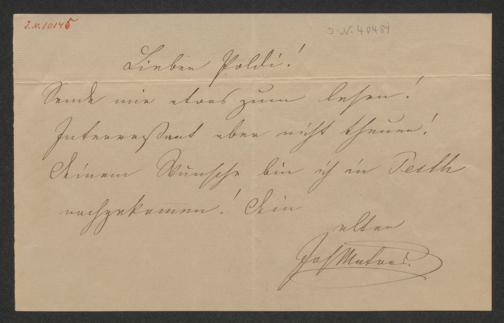 J.N. 10145
J.N. 40484
Lieber Poldi!
Sende mir etwas zum lesen!
Interressant aber nicht theuer!
Deinem Wunsche bin ich in Pesth
nachgekomen! Dein
alter